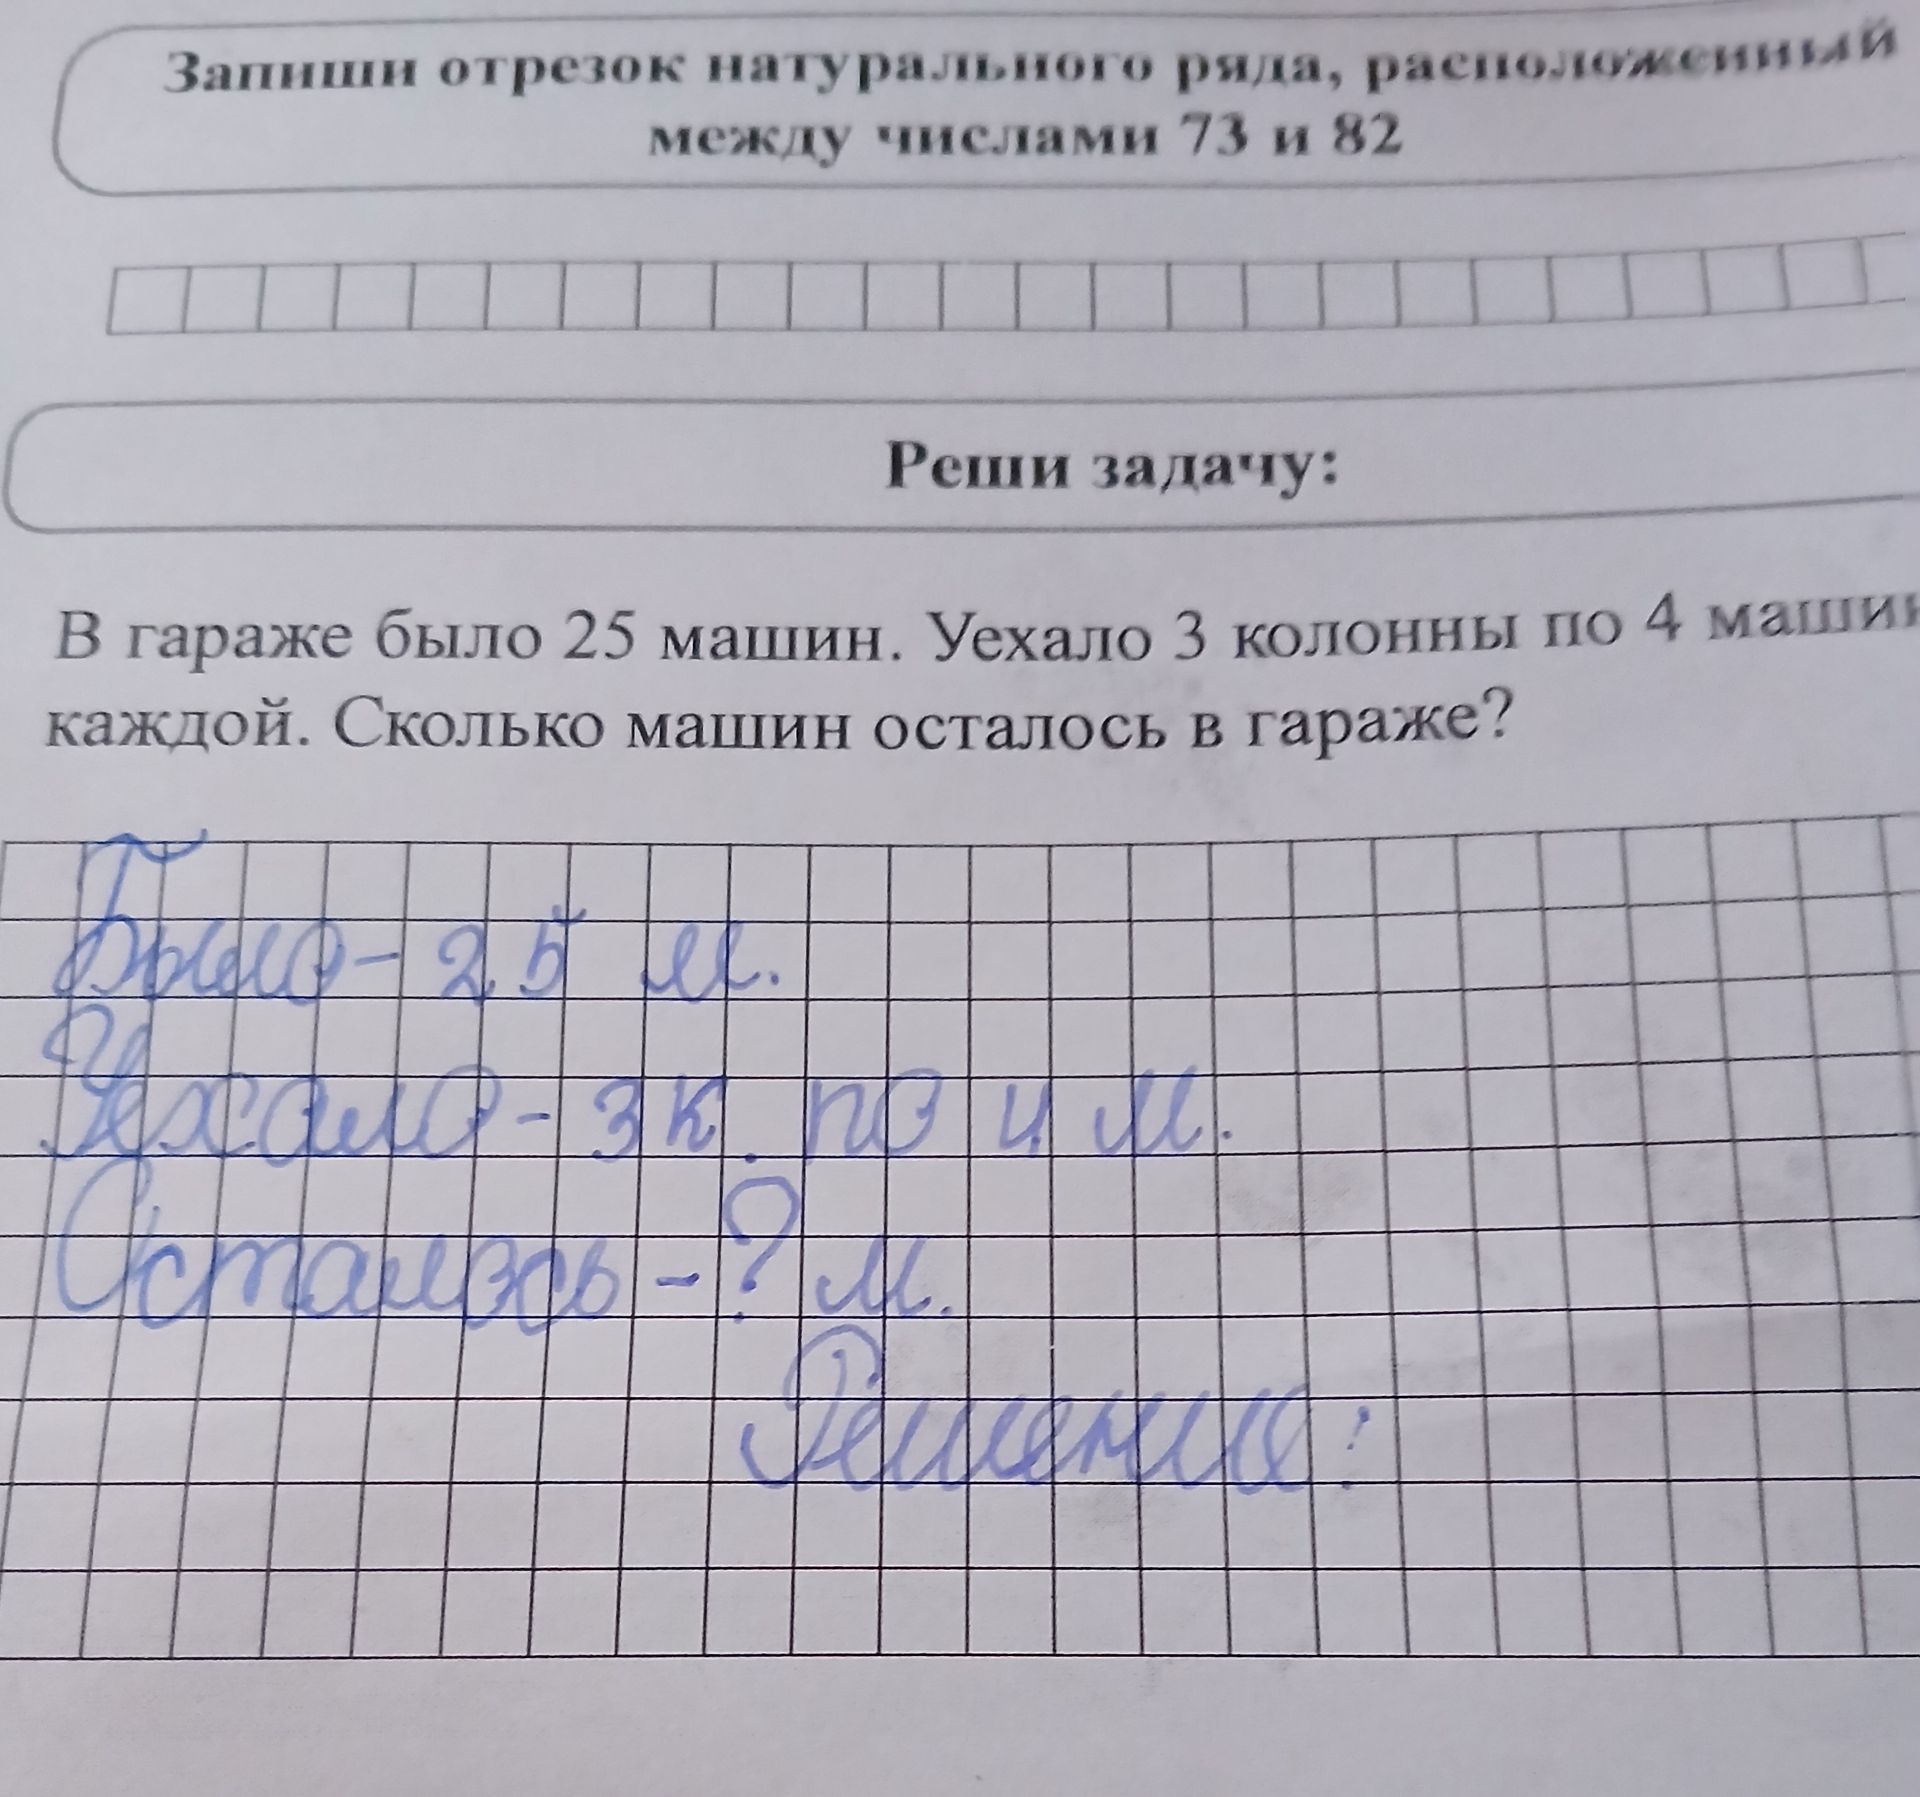 Запиши отрезок натурального ряда, расположенный
между числами 73 и 82
Реши задачу:
В гараже было 25 машин. Уехало 3 колонны по 4 машин
каждой. Сколько машин осталось в гараже?
Было - 25 м.
Уехало - 3 к. по 4 м.
Осталось - ? м.
Решение: